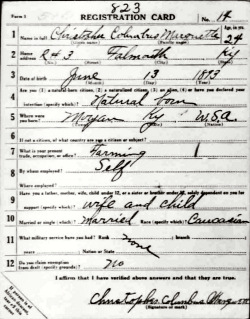 Form 1 823
REGISTRATION CARD No. 14
1 Name in full Christopher Columbus Age, in yrs. 24
2 Home address R # 3 Falmouth Ky
3 Date of birth June 13 1893
4 Are you (1) a natural-born citizen, (2) a naturalized citizen, (3) an alien, (4) or have you declared your
intention (specify which)? Natural born
5 Where were you born? Morgan Ky U.S.A
6 If not a citizen, of what country are you a citizen or subject?
7 What is your present trade, occupation, or office? Farming 1
8 By whom employed? Self
Where employed?
9 Have you a father, mother, wife, child under 12, or a sister or brother under 12, solely dependent on you for
support (specify which)? wife and child
10 Married or single (which)? Married Race (specify which)? Caucasian
11 What military service have you had? Rank none branch
years Nation or State
12 Do you claim exemption from draft (specify grounds)? No
I affirm that I have verified above answers and that they are true.
Christopher Columbus
(Signature or mark)